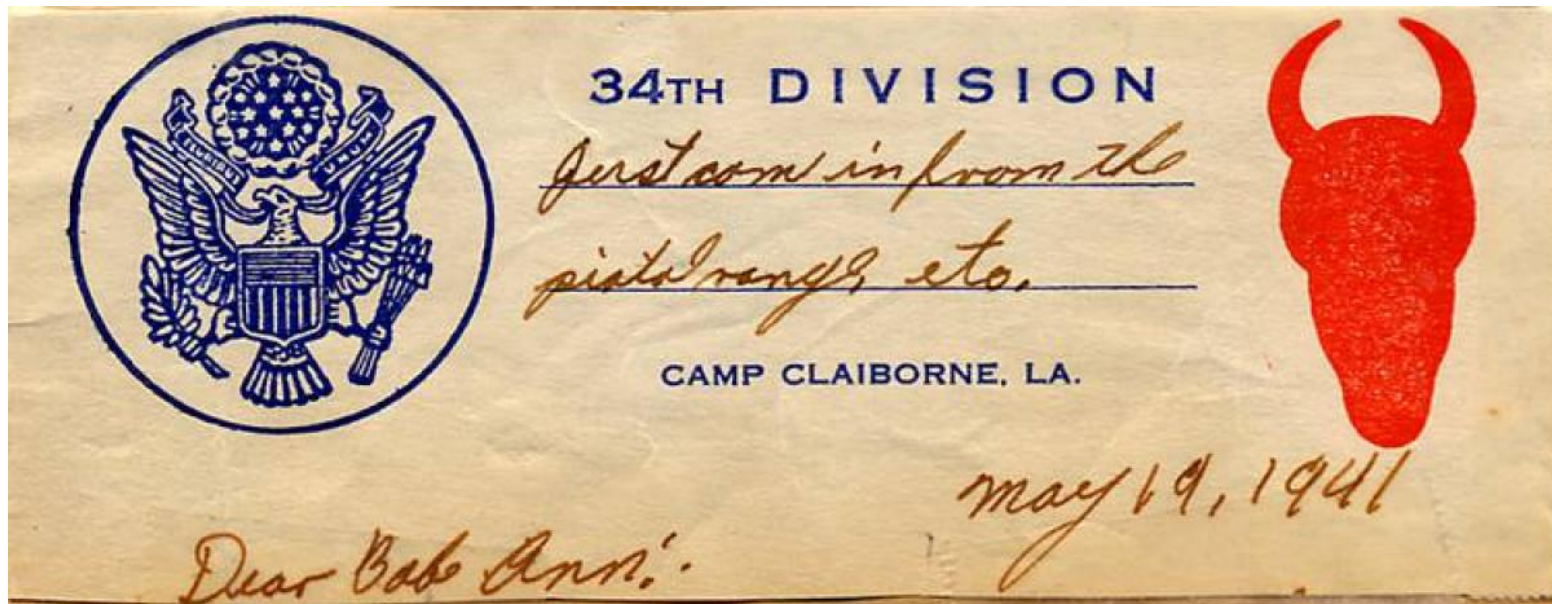 34TH DIVISION
E PLURIBUS UNUM
Just com in from the
pistol range, etc.
CAMP CLAIBORNE, LA.
May 19, 1941
Dear Babe Ann: